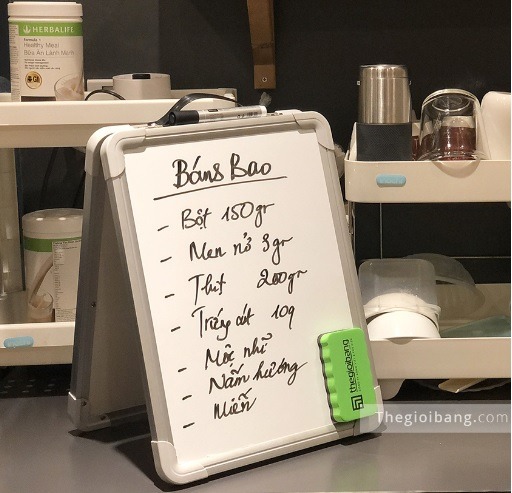 HERBALIFE
Formula 1
Healthy Meal
Bữa Ăn Lành Mạnh
Bánh Bao
- Bột 150gr
- Men nở 3gr
- Thịt 200gr
- Trứng cút 10q
- Mộc nhĩ
- Nấm hương
- Miến
thegioibang
Thegioibang.com